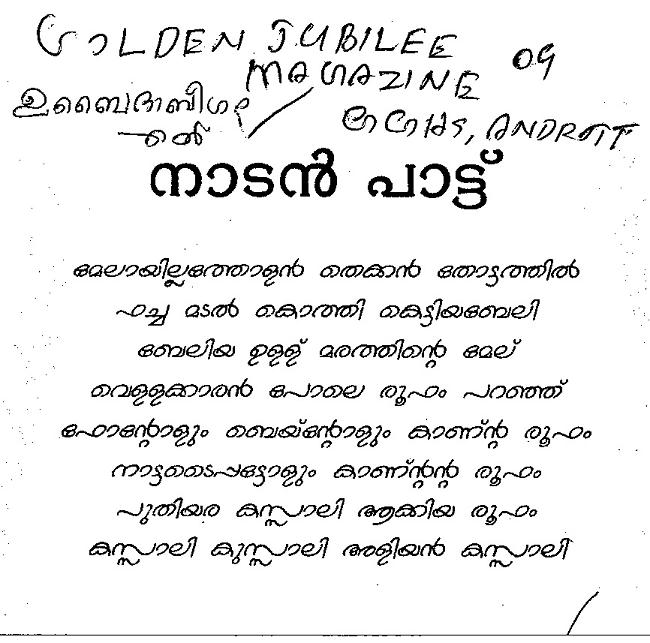 GOLDEN JUBILEE
MAGAZINE 09
ഉബൈദാബീഗം
എൽ
GGHSS, ANDROTT
നാടൻ പാട്ട്
മേലായില്ലത്തോളൻ തെക്കാൻ തോട്ടത്തിൽ
ഫച്ച മടൽ കൊത്തി കെട്ടിയബേലി
ബേലിയ ഉളള് മരത്തിന്റെ മേല്
വെളളക്കാരൻ പോലെ രൂഫം പറഞ്ഞ്
ഫോന്റോളും ബെയ്ന്റോളും കാണ്ന്റ രൂഫം
നാട്ടടൈപ്പട്ടോളും കാണ്ന്റന്റ രൂഫം
പുതിയര കസ്സാലി ആക്കിയ രൂഫം
കസ്സാലി കുസ്സാലി അളിയൻ കസ്സാലീ